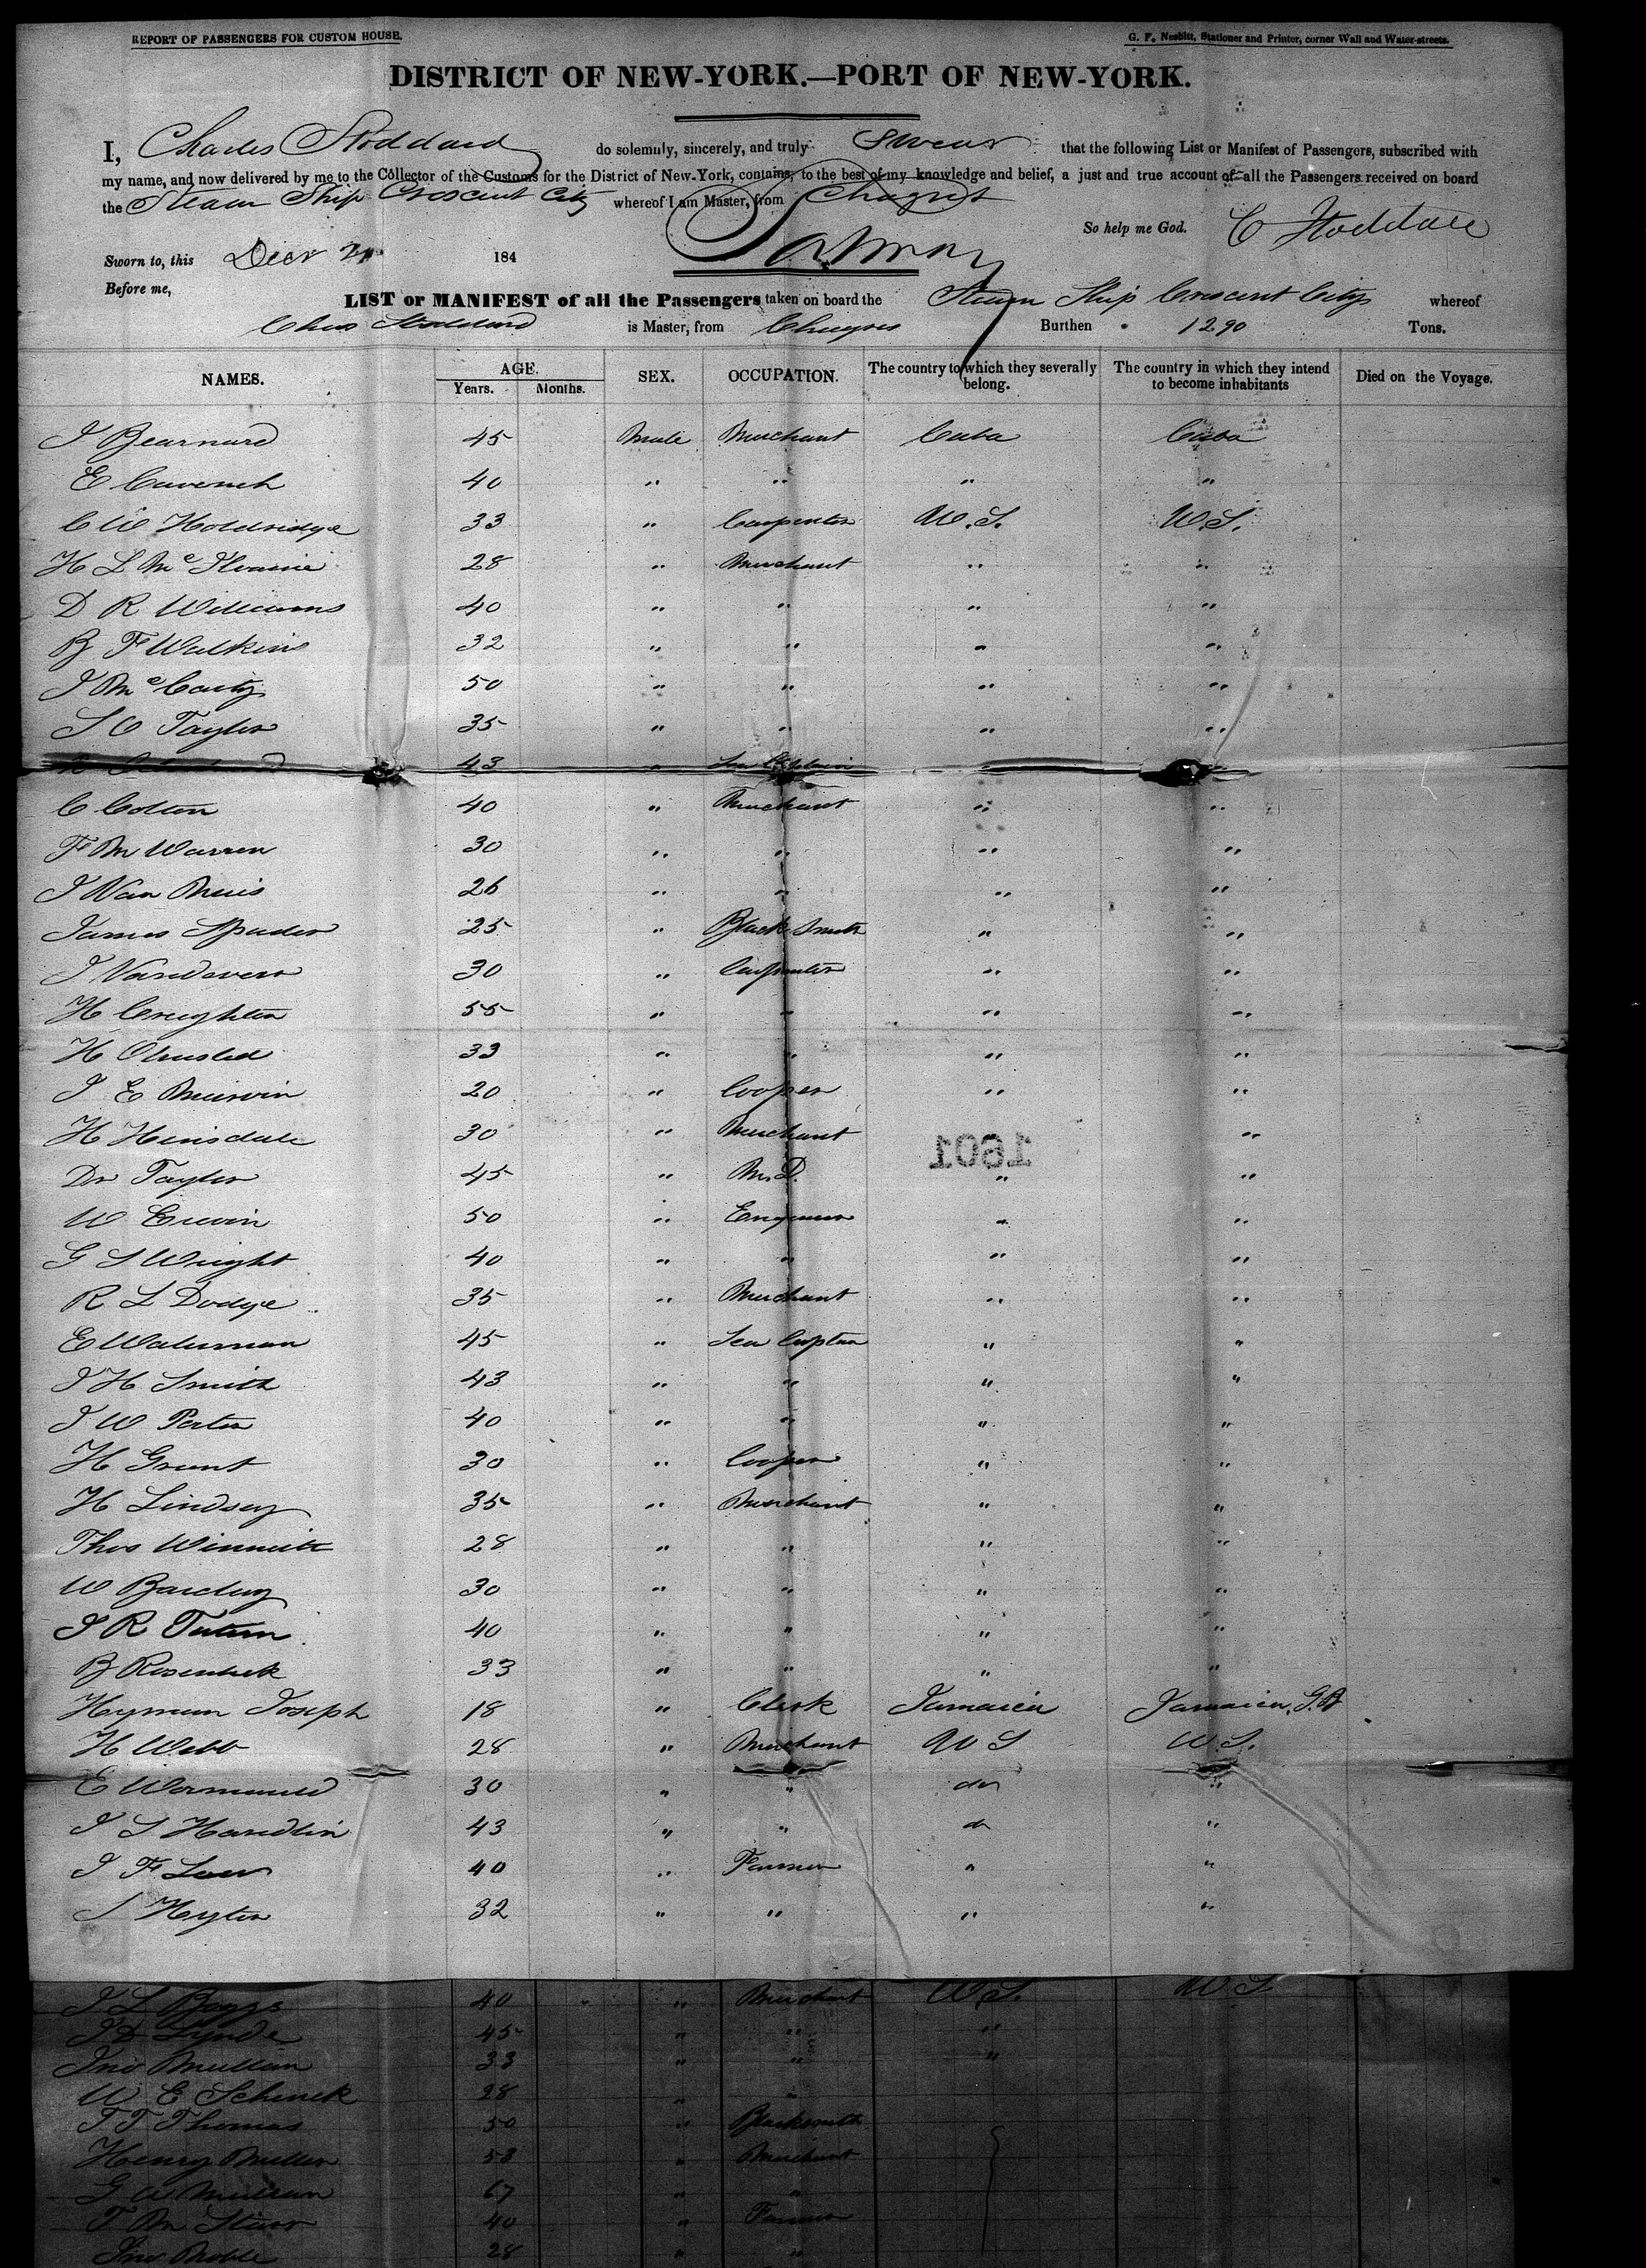 REPORT OF PASSENGERS FOR CUSTOM HOUSE.
G. F. Nesbitt, Stationer and Printer, corner Wall and Water-streets.
DISTRICT OF NEW-YORK.—PORT OF NEW-YORK.
I, Charles Stoddard do solemnly, sincerely, and truly Swear that the following List or Manifest of Passengers, subscribed with
my name, and now delivered by me to the Collector of the Customs for the District of New-York, contains, to the best of my knowledge and belief, a just and true account of all the Passengers received on board
the Steam Ship Crescent City whereof I am Master, from Chagres
So help me God. C Stoddard
Sworn to, this Decr 184
Before me,
LIST or MANIFEST of all the Passengers taken on board the Steam Ship Crescent City whereof
Chas Stoddard is Master, from Chagres Burthen 1290 Tons.
NAMES. AGE. Years. Months. SEX. OCCUPATION. The country to which they severally belong. The country in which they intend to become inhabitants Died on the Voyage.
J Bearnard 45 Male Merchant Cuba Cuba
E 40 " " " "
C W Holdridge 33 " Carpenter U.S. U.S.
H L McIlvaine 28 " Merchant " "
D R Williams 40 " " " "
B F Watkins 32 " " " "
J McCarty 50 " " " "
S O Taylor 35 " " " "
43 " Sea " "
C Colton 40 " Merchant " "
F M Warren 30 " " " "
J Van 26 " " " "
James Spader 25 " Black Smith " "
J Vandever 30 " Carpenter " "
H Creighton 55 " " " "
H Olmsted 33 " " " "
J E Merwin 20 " Cooper " "
H Hinsdale 30 " Merchant " "
1601
Dr Taylor 45 " M.D. " "
W Erwin 50 " Engineer " "
G S Wright 40 " " " "
R L Dodge 35 " Merchant " "
E Waterman 45 " Sea Captain " "
J H Smith 43 " " " "
J W Porter 40 " " " "
H Grant 30 " Cooper " "
H Lindsey 35 " Merchant " "
Thos 28 " " " "
W Barclay 30 " " " "
J R Tatum 40 " " " "
B 33 " " " "
Hyman Joseph 18 " Clerk Jamaica Jamaica,
H Webb 28 " Merchant U S U.S.
E 30 " " do "
J S 43 " " do "
J F Low 40 " Farmer " "
S 32 " " " "
J L Boggs 40 " " Merchant U.S. U S.
J D Lynde 45 " " "
Jno Mullan 33 " " "
W E Schenck 28 " "
T T Thomas 50 " Blacksmith
Henry Miller 53 " Merchant
G W 67 " "
T M Starr 40 " Farmer
Jno Noble 28 " "